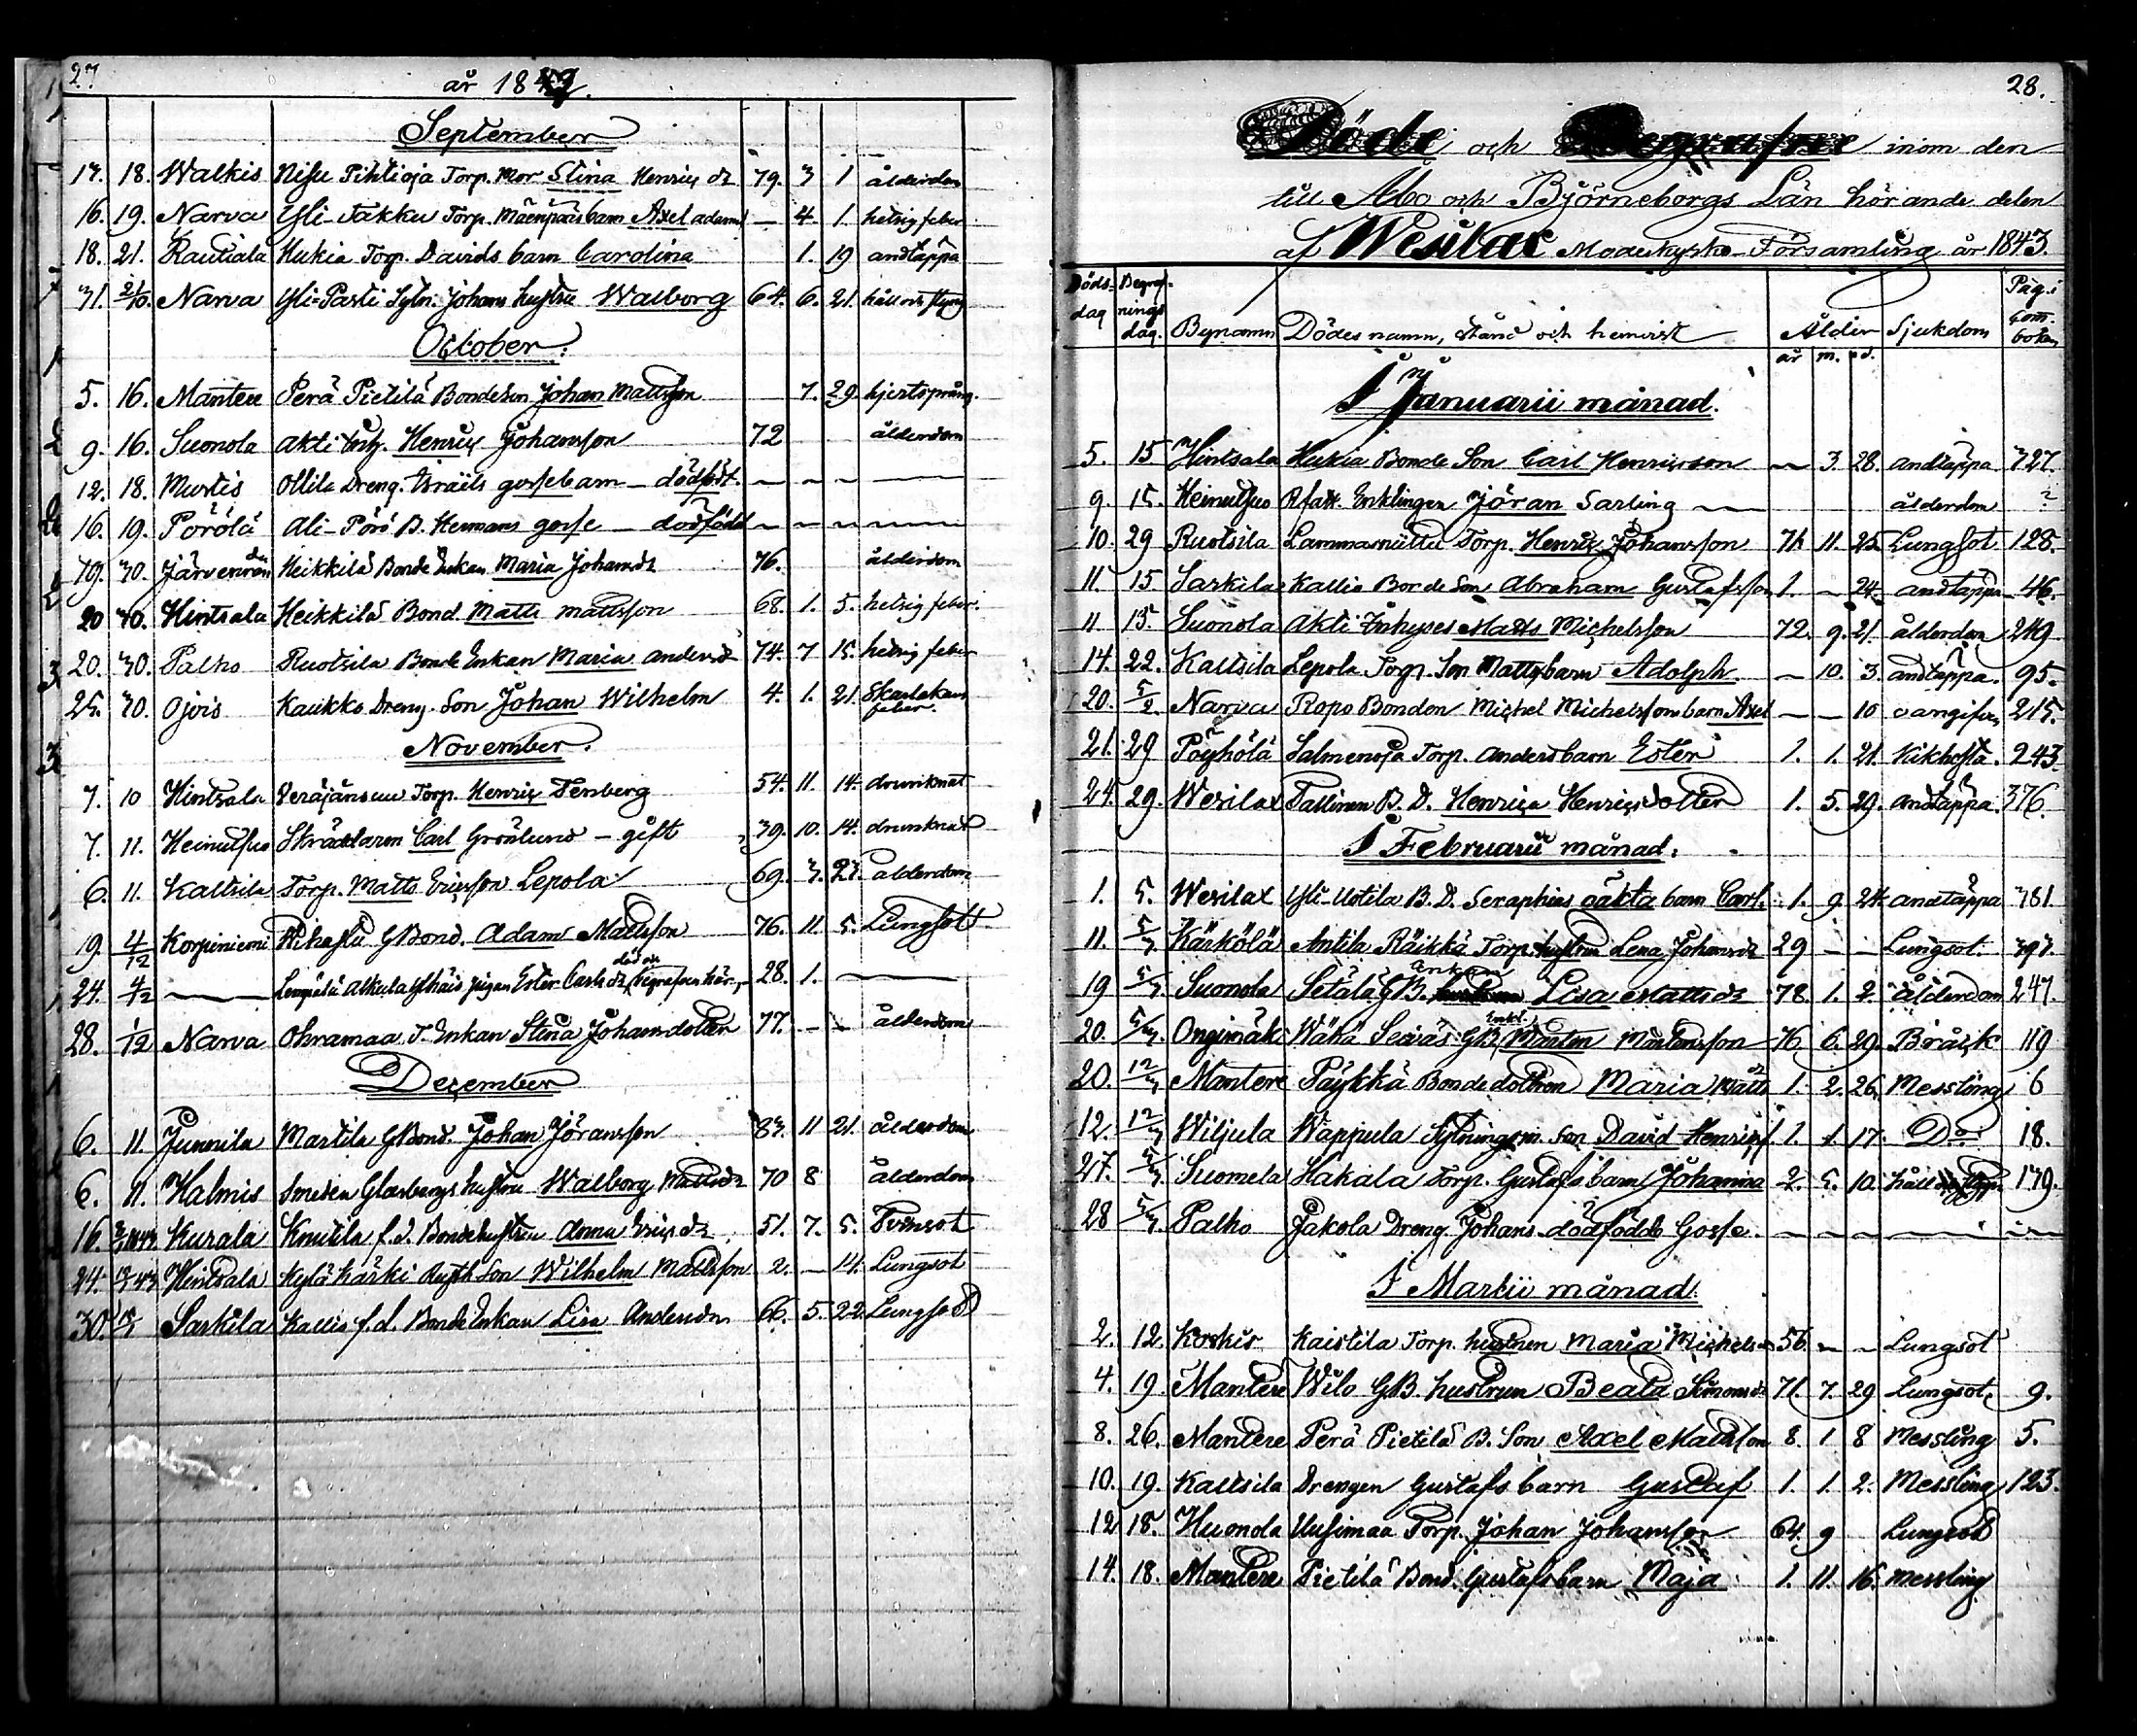 27.
år 1842.
September
17. 18. Walkis Nisu Pihtioja Torp. Mor Stina Henrics dr 79. 3 1 ålderdom
16. 19. Narva Yli-Takku Torp. Mäenpääs barn Axel Adams — 4. 1. hetsig feber
18. 21. Rautiala Hukia Torp. Davids barn Carolina 1. 19 andtäppa
31. 2/10. Narva Yli-Pasti Sytn. Johans hustru Walborg 64. 6. 21. håll och styng
October.
5. 16. Mantere Perä Pietilä Bondeson Johan Mattsson 7. 29. hjertsprång.
9. 16. Suonola Akti Inh. Henric Johansson 72 ålderdom
12. 18. Murtis Ollila Dreng. Israels gossebarn — dödfödt. — — —
16. 19. Pörölä Ali-Pörö B. Hermans gosse — dödfödd — — —
19. 30. Järvenran Heikkilä Bonde Enkan Maria Johansdr 76. ålderdom
20 30. Hintsala Heikkilä Bond. Matts Mattsson 68. 1. 5. hetsig feber.
20. 30. Palho Ruotsila Bonde Enkan Maria Andersdr 74. 7 15. hetsig feber
25. 30. Ojois Kaukko Dreng. Son Johan Wilhelm 4. 1. 21. Skarlakans feber.
November.
7. 10 Hintsala Veräjänsuu Torp. Henric Fenberg 54. 11. 14. drunknat
7. 11. Heinutsuo Skräddaren Carl Grönlund — gift 39. 10. 14. drunknat
6. 11. Kaltsila Torp. Matts Ericsson Lepola 69. 3. 27. ålderdom
19. 4/12 Korpiniemi GBond. Adam Mattsson 76. 11. 5. Lungsot
24. 4/12 — Lempälä Alkula pigan Ester Carls dr, död och begrafven här. 28. 1. —
28. 1/12 Narva Ohramaa T. Enkan Stina Johansdotter 77. — — ålderdom
December
6. 11. Junnila Martila GBond. Johan Jöransson 83. 11 21. ålderdom
6. 11. Halmis Smeden Glasbergs hustru Walborg Mattsdr 70 8 ålderdom
16. Kurala Knutila f.d. Bondehustru Anna Erics dr 51. 7. 5. Tvinsot
24. Hintsala Kyläkärki Rusth Son Wilhelm Mattsson 2. — 14. Lungsot
30. Sarkila Kallio f.d. Bonde Enkan Lisa Andersdr 66. 5. 22. Lungsot
28.
Döde och Begrafne inom den
till Åbo och Björneborgs Län hörande delen
af Wesilax Moderkyrko-Församling år 1843.
Döds-dag Begrafnings dag. Bynamn Dödes namn, stånd och hemvist Ålder Sjukdom Pag. i Com. boken
år m. d.
I Januarii månad.
5. 15 Hintsala Hukia Bonde Son Carl Henricsson — 3. 28. andtäppa 327.
9. 15. Heinutsuo Afsk. Enklingen Jöran Sarling — ålderdom ?
10. 29 Ruotsila Lammasniittu Torp. Henric Johansson 71. 11. 25. Lungsot 128.
11. 15 Sarkila Kallio Bonde Son Abraham Gustafsson 1. — 24. andtäppa 46.
11 15. Suonola Akti Inhyses Matts Michelsson 72. 9. 21. ålderdom 249
14. 22. Kaltsila Lepola Torp. Son Matts barn Adolph. — 10. 3. andtäppa. 95.
20. 5/2. Narva Ropo Bonden Michel Michelssons barn Axel — — 10 oangifven 215.
21. 29 Pöyhölä Salmenoja Torp. Anders barn Ester 1. 1. 21. Kikhosta. 243.
24. 29. Wesilax Tallinen B.D. Henrica Henricsdotter 1. 5. 29. andtäppa. 376.
I Februarii månad.
1. 5. Wesilax Yli-Uotila B.D. Seraphias oäkta barn Carl. 1. 9. 24. andtäppa 381
11. 5/3 Kärkölä Antila Räikkä Torp. hustrun Lena Johansdr 29 — — Lungsot. 397.
19 5/3 Suonola Setälä GB. Enkan Lisa Mattsdr 78. 1. 2. ålderdom 247.
20. 5/3. Ongimäki Wähä Seiväs GB. Enkl. Mårten Mårtensson 76 6. 29. Bråck 119
20. 12/3 Mantere Päykkä Bondedottren Maria Matts 1. 2. 26. Messling 6
12. 12/3 Wiljula Wappula Sytningsm. Son David Henricss 1. 1. 17. Do 18.
27. 5/3 Suomela Hakala Torp. Gustafs barn Johanna 2. 5. 10. håll 139.
28 5/3 Palho Jakola Dreng. Johans dödfödde Gosse. — — — — —
I Martii månad.
2. 12. Koskis Kaistila Torp. hustrun Maria Michelsdr 56. — — Lungsot
4. 19. Mantere Wilo GB. hustrun Beata Simonsdr 71. 7. 29 Lungsot. 9.
8. 26. Mantere Perä Pietilä B. Son Axel Mattsson 8. 1 8 Messling 5.
10. 19. Kaltsila Drengen Gustafs barn Gustaf 1. 1. 2. Messling 123.
12 18. Huonola Uusimaa Torp. Johan Johansson 64. 9 Lungsot
14. 18. Mantere Pietilä Bond. Gustafs barn Maja 1. 11. 16. Messling